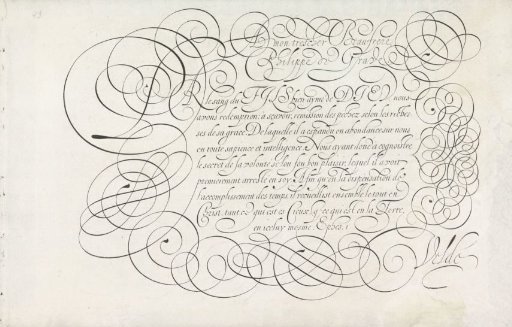 A mon trescher Beaufrere
Philippe de Grave
Par le sang du FILS bien aymé de DIEU, nous
avons redemption, a sçavoir, remission des pechez, selon les riches-
ses de sa grace. De laquelle il a espandu en abondance sur nous
en toute sapience et intelligence. Nous ayant donné a cognoistre
le secret de sa volonté selon son bon plaisir, lequel il avoit
premierement arresté en soy. A fin qu'en la dispensation de
l'accomplissement des temps il recueillist ensemble le tout en
Christ, tant ce qui est es Cieux, q ce qui est en la Terre,
en iceluy mesme. Ephes. 1
Velde